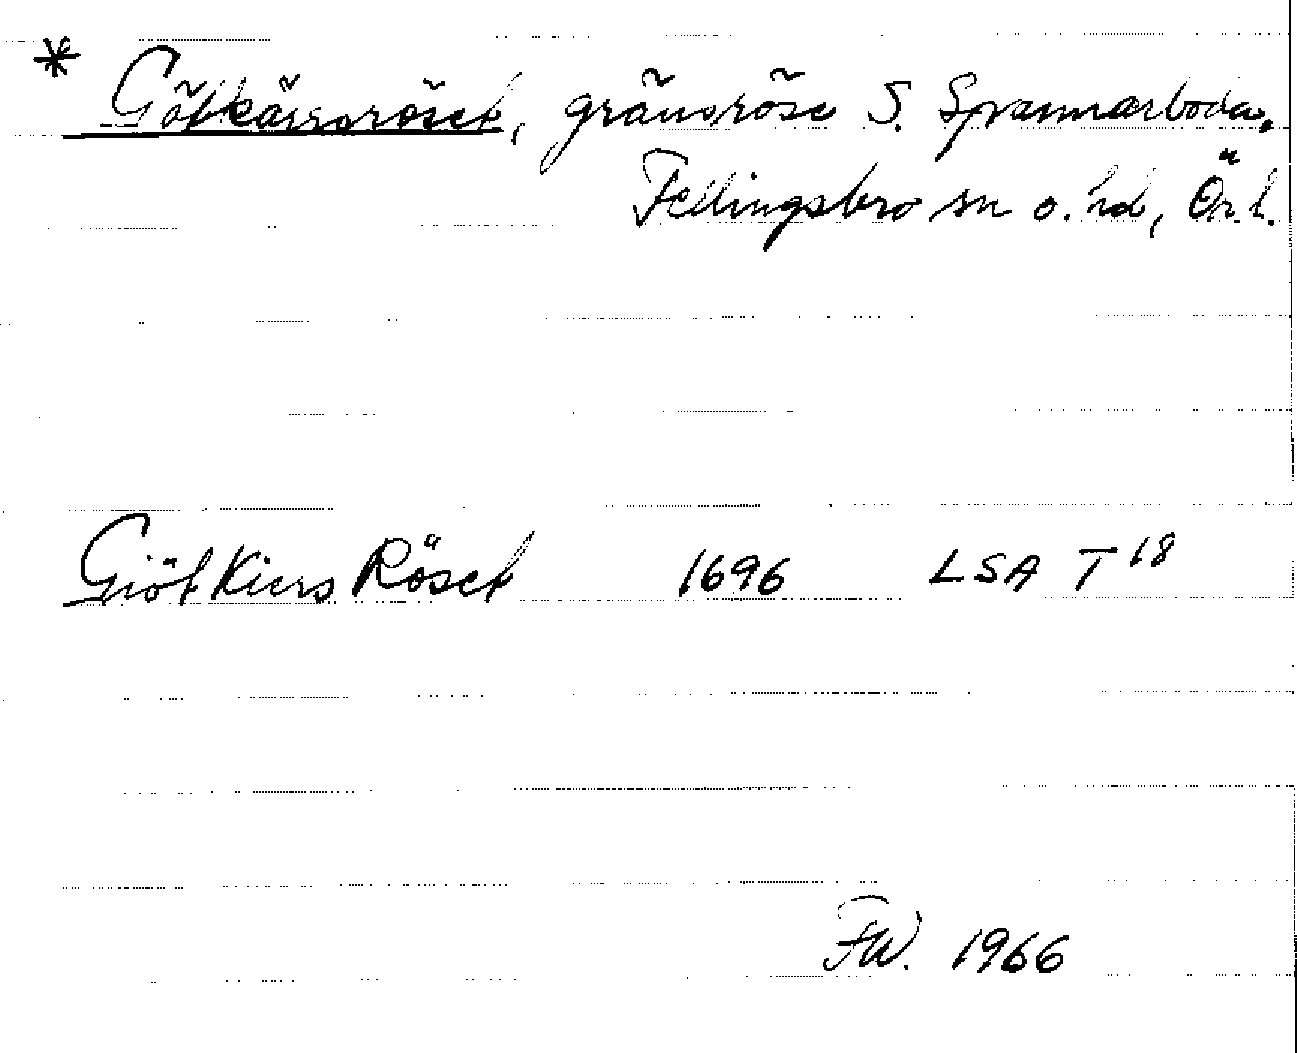 * Götkärrsröset, gränsröse S. Spannarboda,
Fellingsbro sn o. hd, Ör. l.
Giötkiers Röset 1696 LSA T 18
FW. 1966